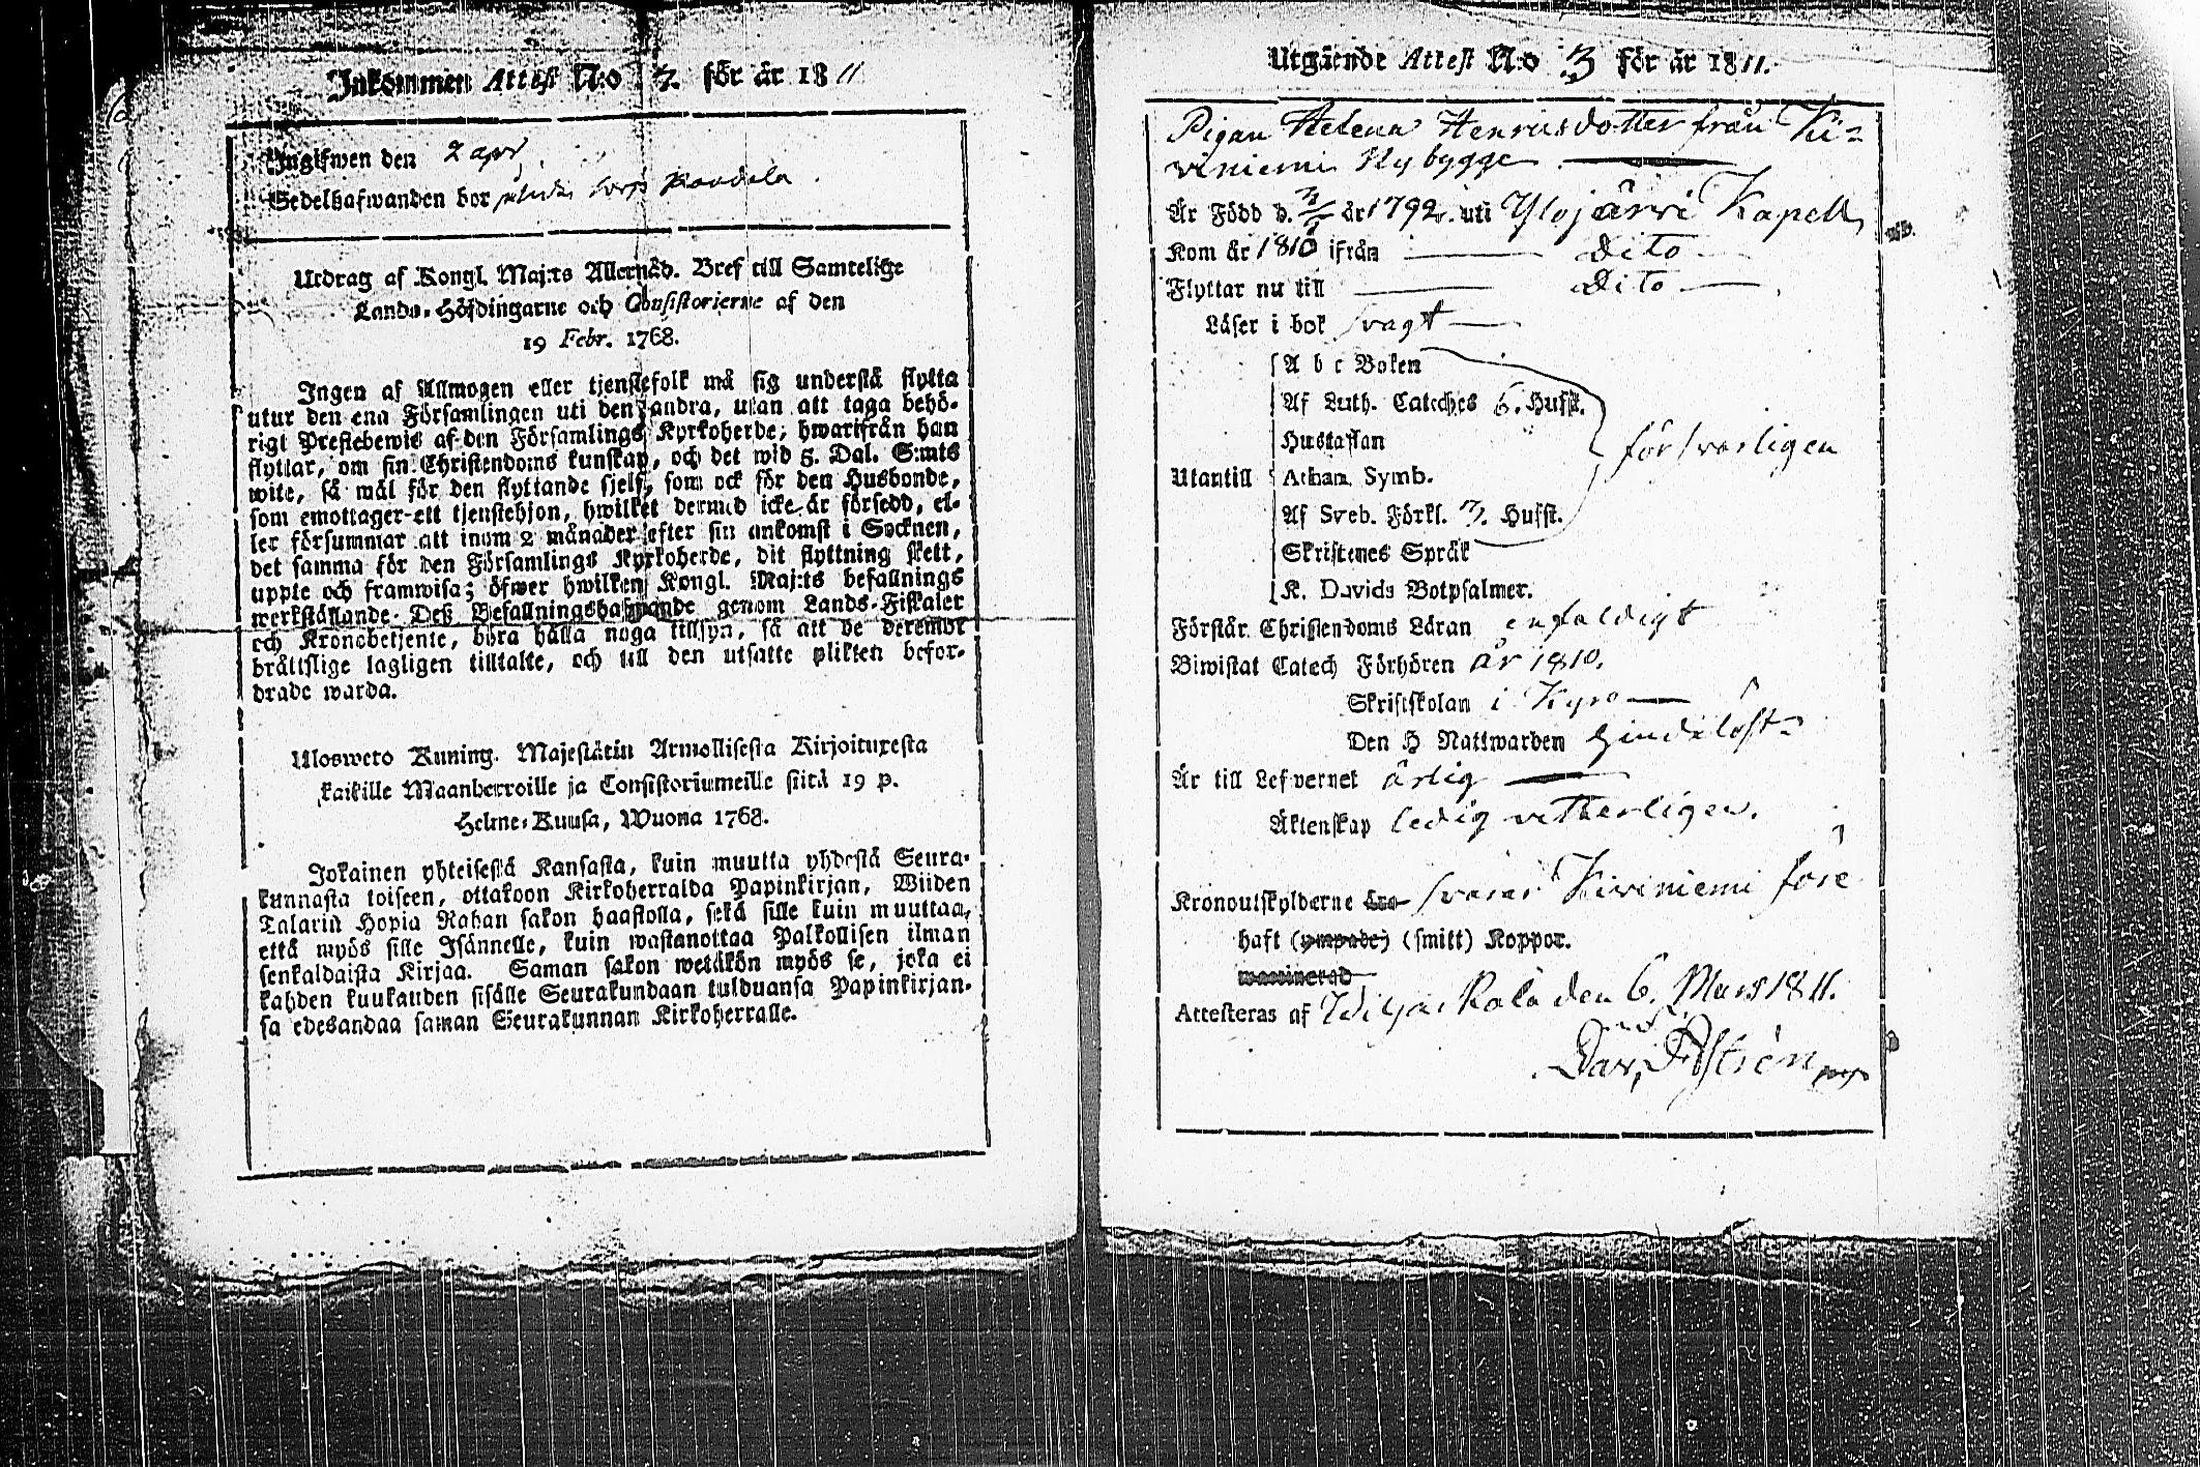 Inkommen Attest N:o 7. för år 1811
Ingifwen den 2 apr
Sedelhafwanden bor
Utdrag af Kongl. Maj:ts Allernåd. Bref till Samtelige
Lands-Höfdingarne och Consistorierne af den
19 Febr. 1768.
Ingen af Allmogen eller tjenstefolk må sig understå flytta
utur den ena Församlingen uti den andra, utan att taga behö-
rigt Prestebewis af den Församlings Kyrkoherde, hwarifrån han
flyttar, om sin Christendoms kunskap, och det wid 5. Dal. S:mts
wite, så mål för den flyttande sjelf, som ock för den Husbonde,
som emottager ett tjenstehjon, hwilket dermed icke är försedd, el-
ler försummar att inom 2 månader efter sin ankomst i Socknen,
det samma för den Församlings Kyrkoherde, dit flyttning skett,
uppte och framwisa; öfwer hwilken Kongl. Maj:ts befallnings
werkställande Deß Befallningshafwande genom Lands-Fiskaler
och Kronobetjente, böra hålla noga tillsyn, så att de deremot
bråttslige lagligen tilltalte, och till den utsatte plikten befor-
drade warda.
Ulosweto Kuning. Majestätin Armollisesta Kirjoituxesta
kaikille Maanherroille ja Consistoriumeille siitä 19 p.
Helme-Kuusa, Wuona 1768.
Jokainen yhteisestä Kansasta, kuin muutta yhdestä Seura-
kunnasta toiseen, ottakoon Kirkoherralda Papinkirjan, Wiiden
Talarin Hopia Rahan sakon haastolla, sekä sille kuin muuttaa,
että myös sille Isännelle, kuin wastanottaa Palkollisen ilman
senkaldaista Kirjaa. Saman sakon wetäkön myös se, joka ei
kahden kuukauden sisälle Seurakundaan tulduansa Papinkirjan-
sa edesandaa saman Seurakunnan Kirkoherralle.
Utgående Attest N:o 3 för år 1811.
Pigan Helena Henricsdotter från Ki=
viniemi Nybygge
Är Född d. år 1792. uti Ylöjärvi Kapell
Kom år 1810 ifrån dito
Flyttar nu till Dito
Läser i bok svagt
A b c Boken
Af Luth. Cateches 6. Hufst.
Hustaflan
försvarligen
Utantill Athan. Symb.
Af Sveb. Förkl. 7. Hufst.
Skriftenes Språk
K. Davids Botpsalmer.
Förstår Christendoms Läran enfaldigt
Biwistat Catech Förhören år 1810.
Skriftskolan i Kyro
Den H Nattwarden
Är till Lefvernet ärlig
Äktenskap ledig vetterligen.
Kronoutskylderne äro svarar Kiviniemi före
haft (ympade) (smitt) Koppor.
waccinerad
Attesteras af den 6. Mars 1811.
Dav. Åström